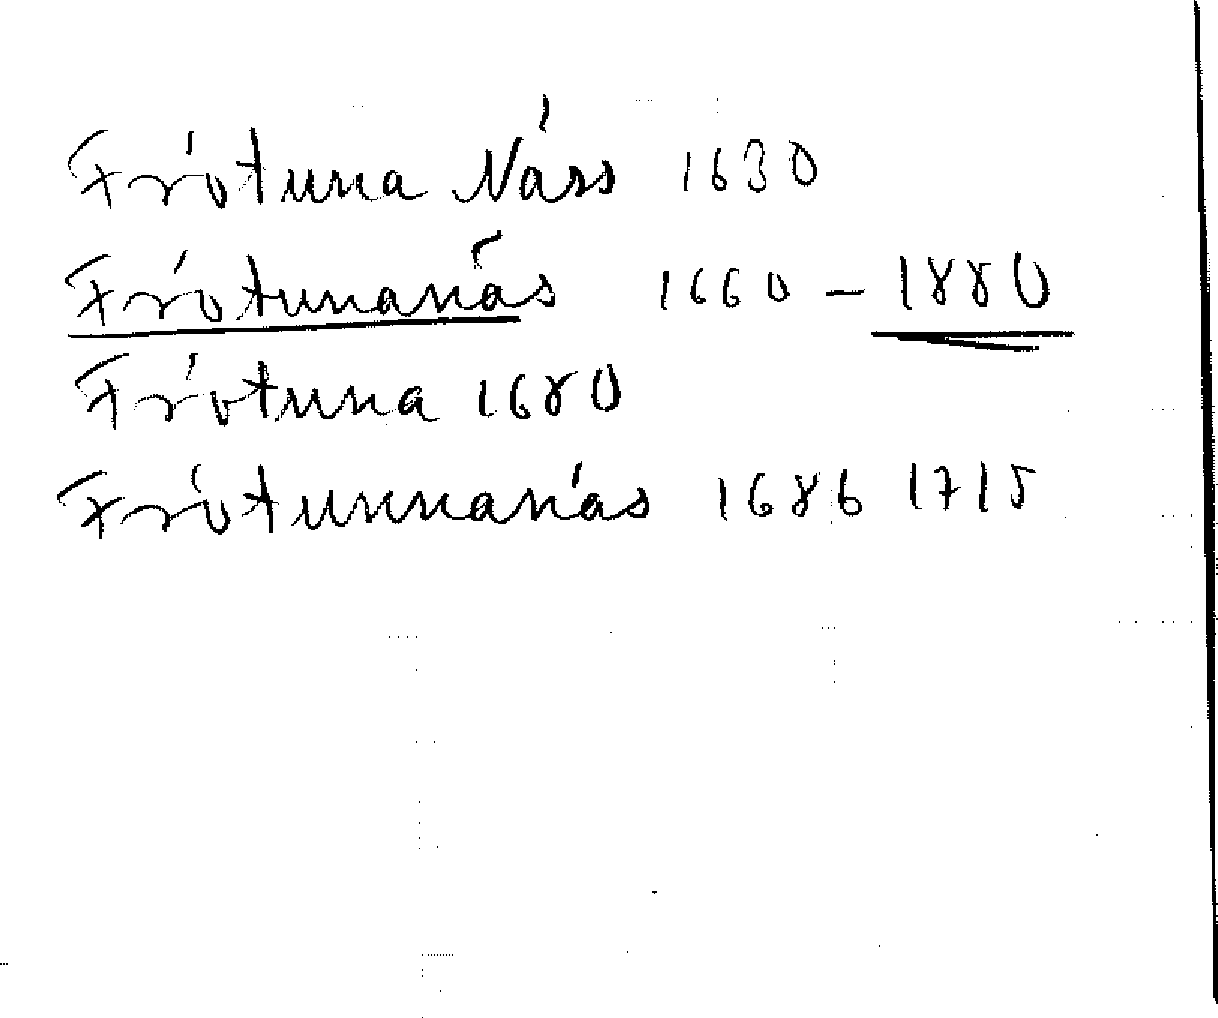 Frötuna Näss 1630
Frötunanäs 1660 - 1880
Frötuna 1680
Frötunnanäs 1686 1715